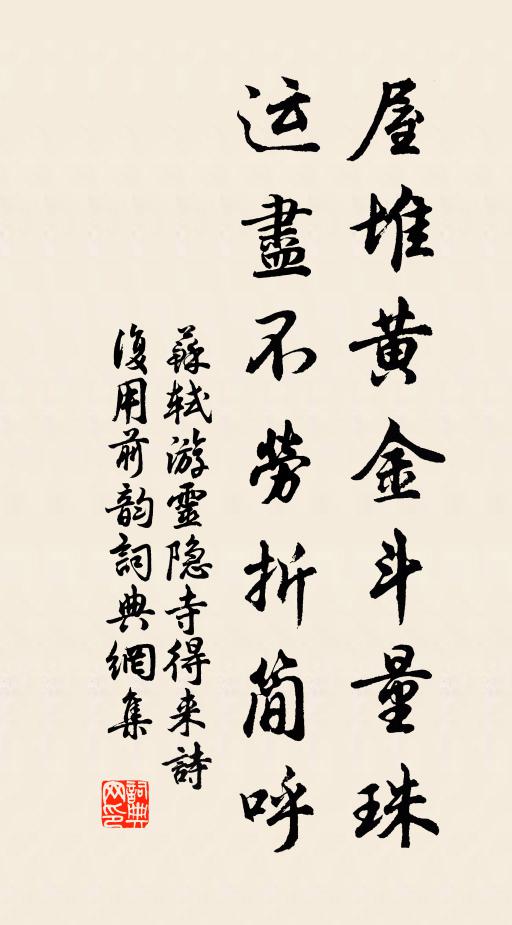 屋堆黄金斗量珠
运盡不勞折简呼
蘇軾游靈隐寺得来詩
復用前韵詞典網集
詞典网印